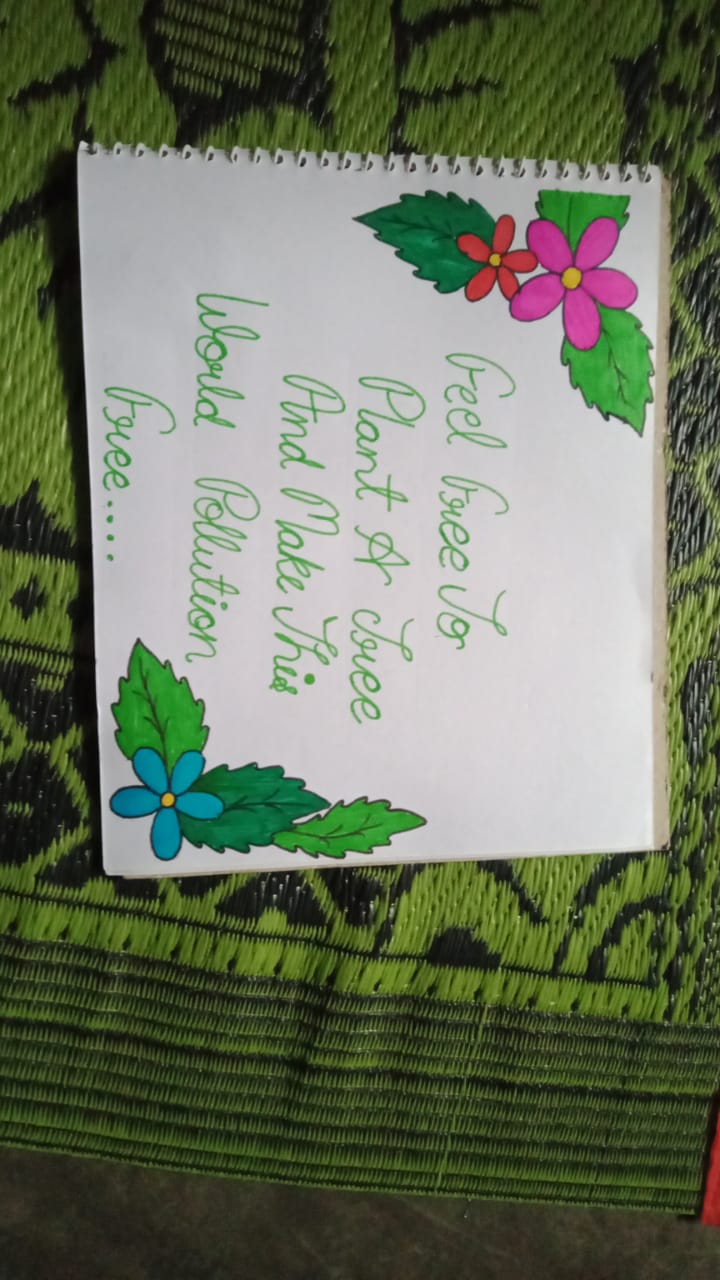 Feel Free To
Plant A Tree
And Make This
World Pollution
Free....